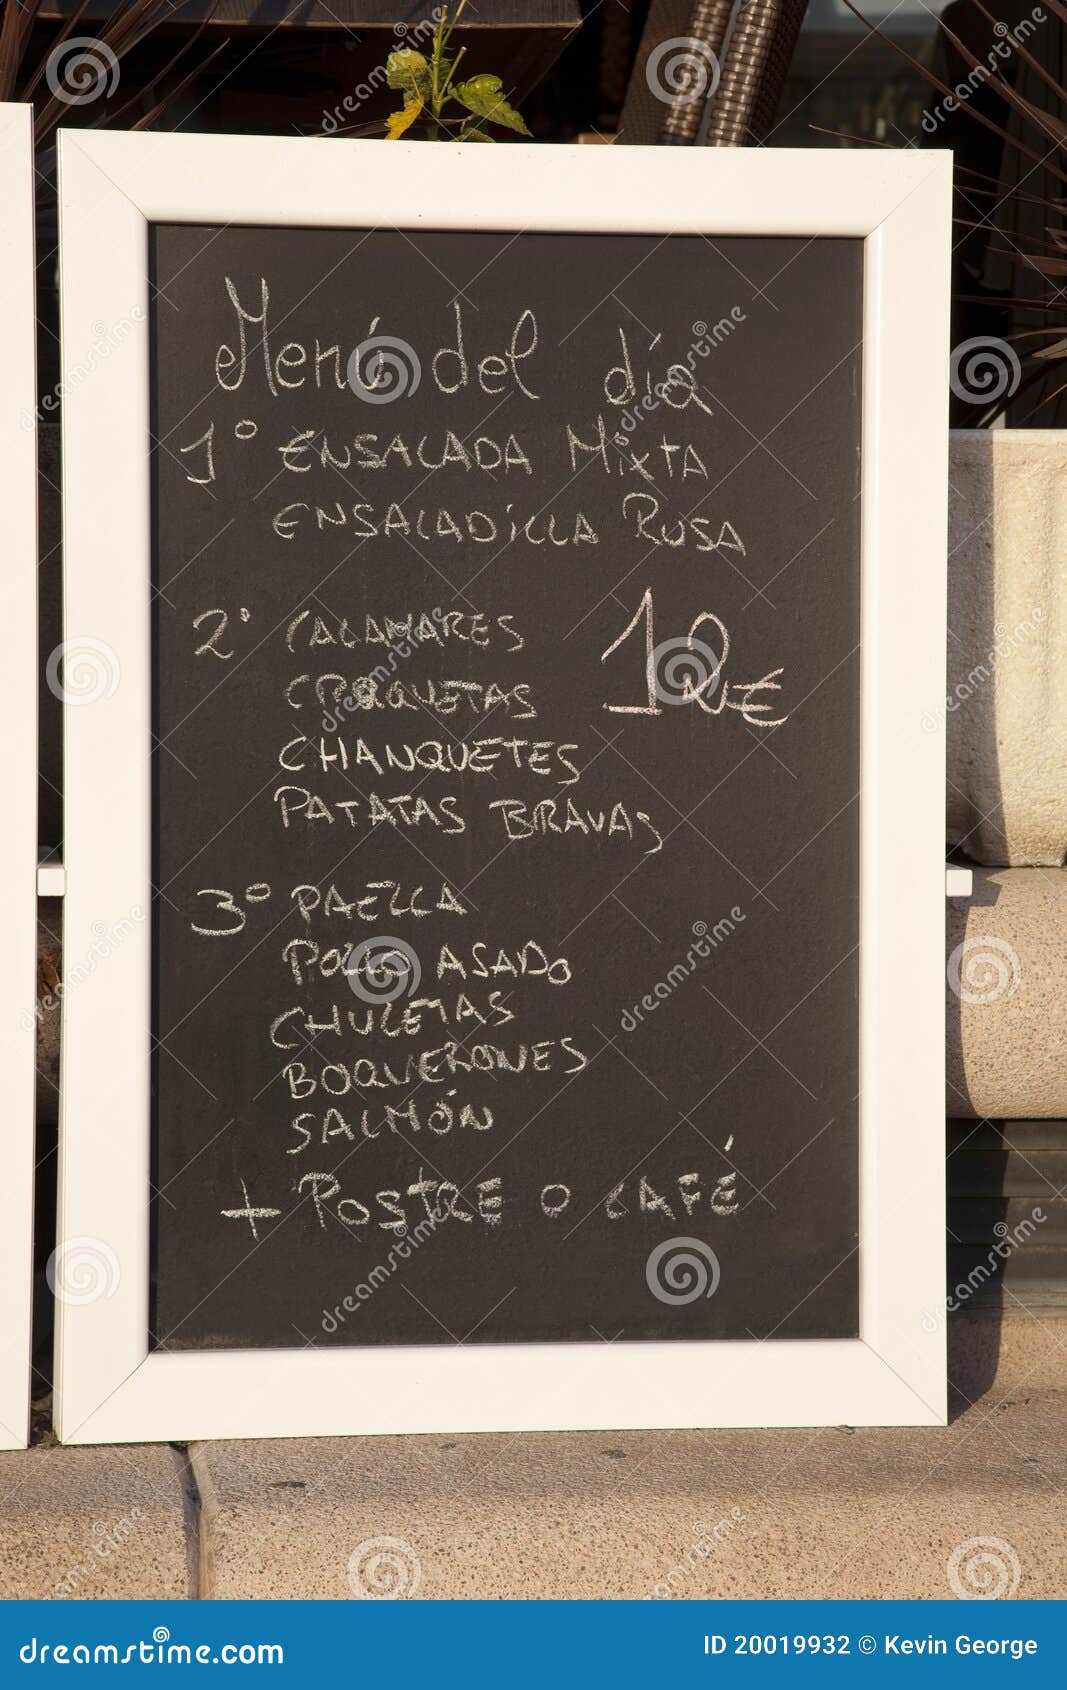 Menú del día
1º ENSALADA MIXTA
ENSALADILLA RUSA
2º CALAMARES
12€
CROQUETAS
CHANQUETES
PATATAS BRAVAS
3º PAELLA
POLLO ASADO
CHULETAS
BOQUERONES
SALMÓN
+ POSTRE O CAFÉ
dreamstime.com
ID 20019932 © Kevin George